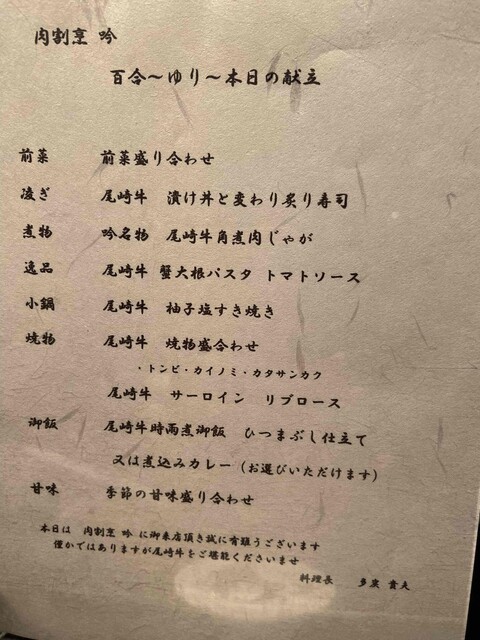 肉割烹 吟
百合～ゆり～本日の献立
前菜 前菜盛り合わせ
凌ぎ 尾崎牛 漬け丼と変わり炙り寿司
煮物 吟名物 尾崎牛角煮肉じゃが
逸品 尾崎牛 蟹大根パスタ トマトソース
小鍋 尾崎牛 柚子塩すき焼き
焼物 尾崎牛 焼物盛合わせ
・トンビ・カイノミ・カタサンカク
尾崎牛 サーロイン リブロース
御飯 尾崎牛時雨煮御飯 ひつまぶし仕立て
又は煮込みカレー（お選びいただけます）
甘味 季節の甘味盛り合わせ
本日は 肉割烹 吟 に御来店頂き誠に有難うございます
僅かではありますが尾崎牛をご堪能くださいませ
料理長 多炭 貴夫